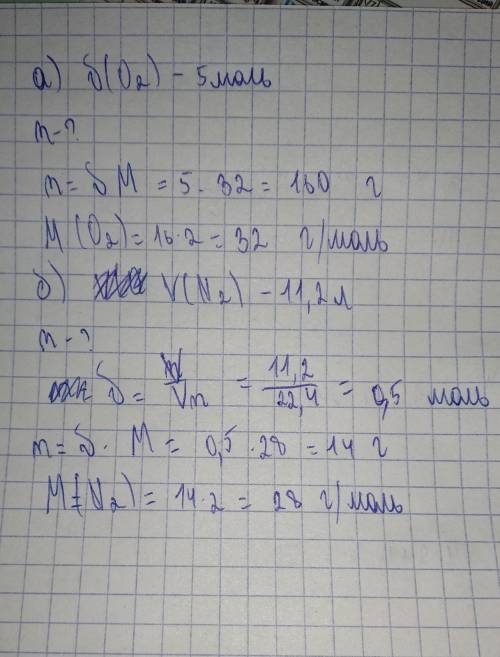 а) δ(O₂) - 5 моль
m - ?
m = δ M = 5 · 32 = 160 г
M(O₂) = 16·2 = 32 г/моль
б) V(N₂) - 11,2 л
m - ?
δ = V/Vm = 11,2/22,4 = 0,5 моль
m = δ · M = 0,5 · 28 = 14 г
M(N₂) = 14·2 = 28 г/моль